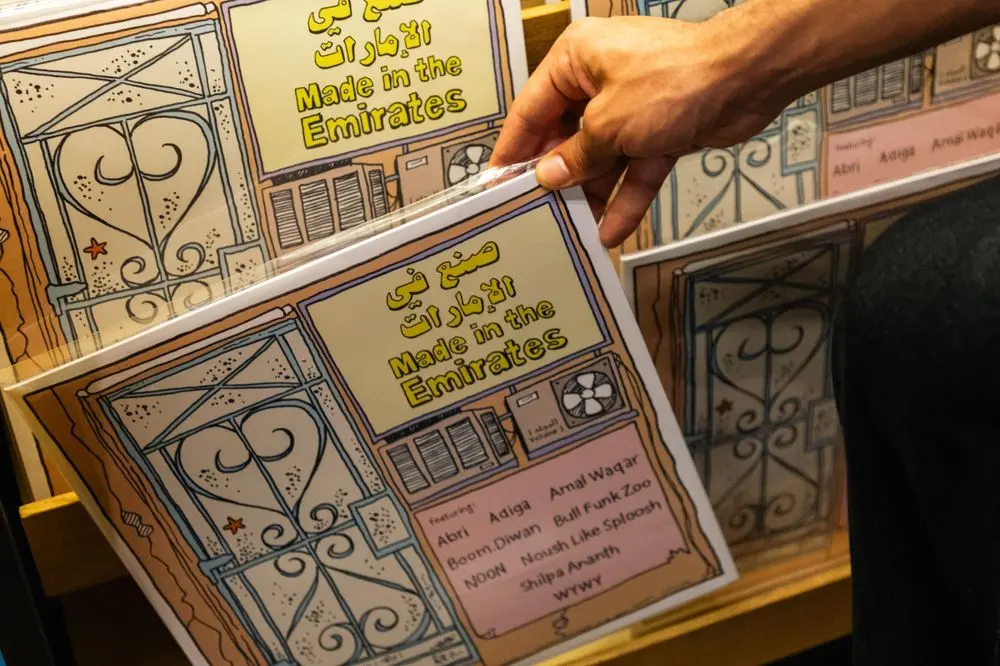 صنع في
الإمارات
Made in the
Emirates
featuring:
Abri Adiga Amal Waqar
صنع في
الإمارات
Made in the
Emirates
المجلد ١
Volume 1
featuring:
Abri Adiga Amal Waqar
Boom.Diwan Bull Funk Zoo
NOON Noush Like Sploosh
Shilpa Ananth
WYWY